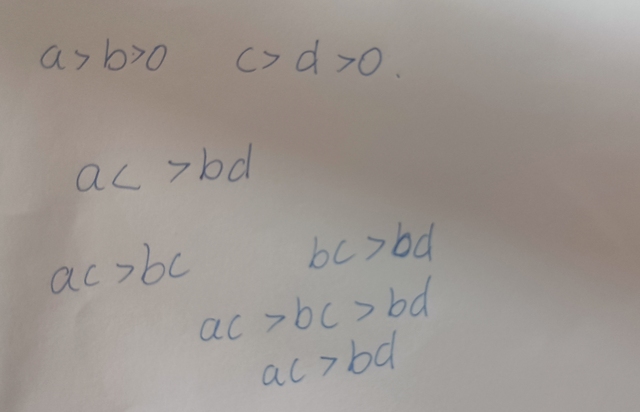 a>b>0 c>d>0.
ac >bd
ac>bc bc>bd
ac>bc>bd
ac>bd